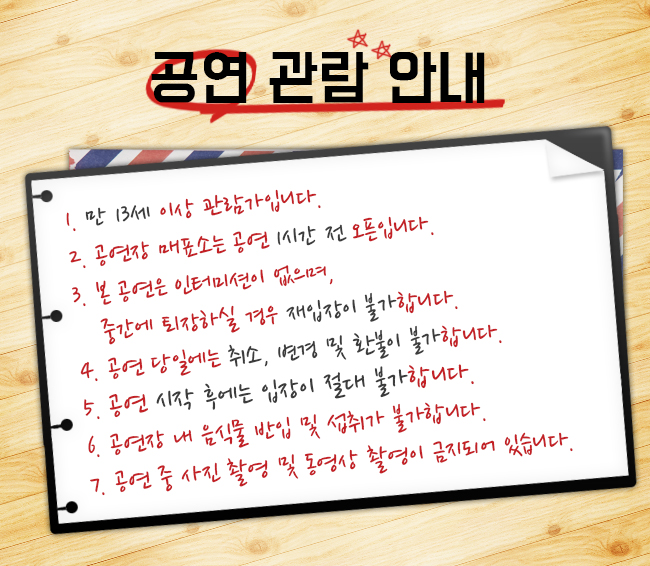 공연 관람 안내
1. 만 13세 이상 관람가입니다.
2. 공연장 매표소는 공연 1시간 전 오픈입니다.
3. 본 공연은 인터미션이 없으며,
중간에 퇴장하실 경우 재입장이 불가합니다.
4. 공연 당일에는 취소, 변경 및 환불이 불가합니다.
5. 공연 시작 후에는 입장이 절대 불가합니다.
6. 공연장 내 음식물 반입 및 섭취가 불가합니다.
7. 공연 중 사진 촬영 및 동영상 촬영이 금지되어 있습니다.